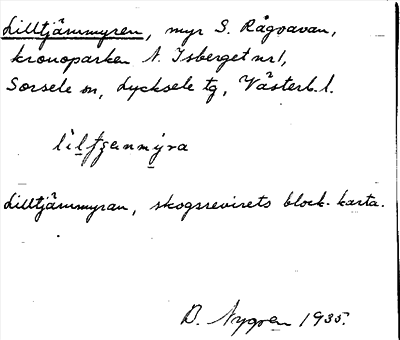 Lilltjärnmyren, myr S. Rågoavan,
kronoparken N. Isberget nr 1,
Sorsele sn, Lycksele tg, Västerb. l.
Lilltjärnmyran, skogsrevirets block-karta.
B. Nygren 1935.